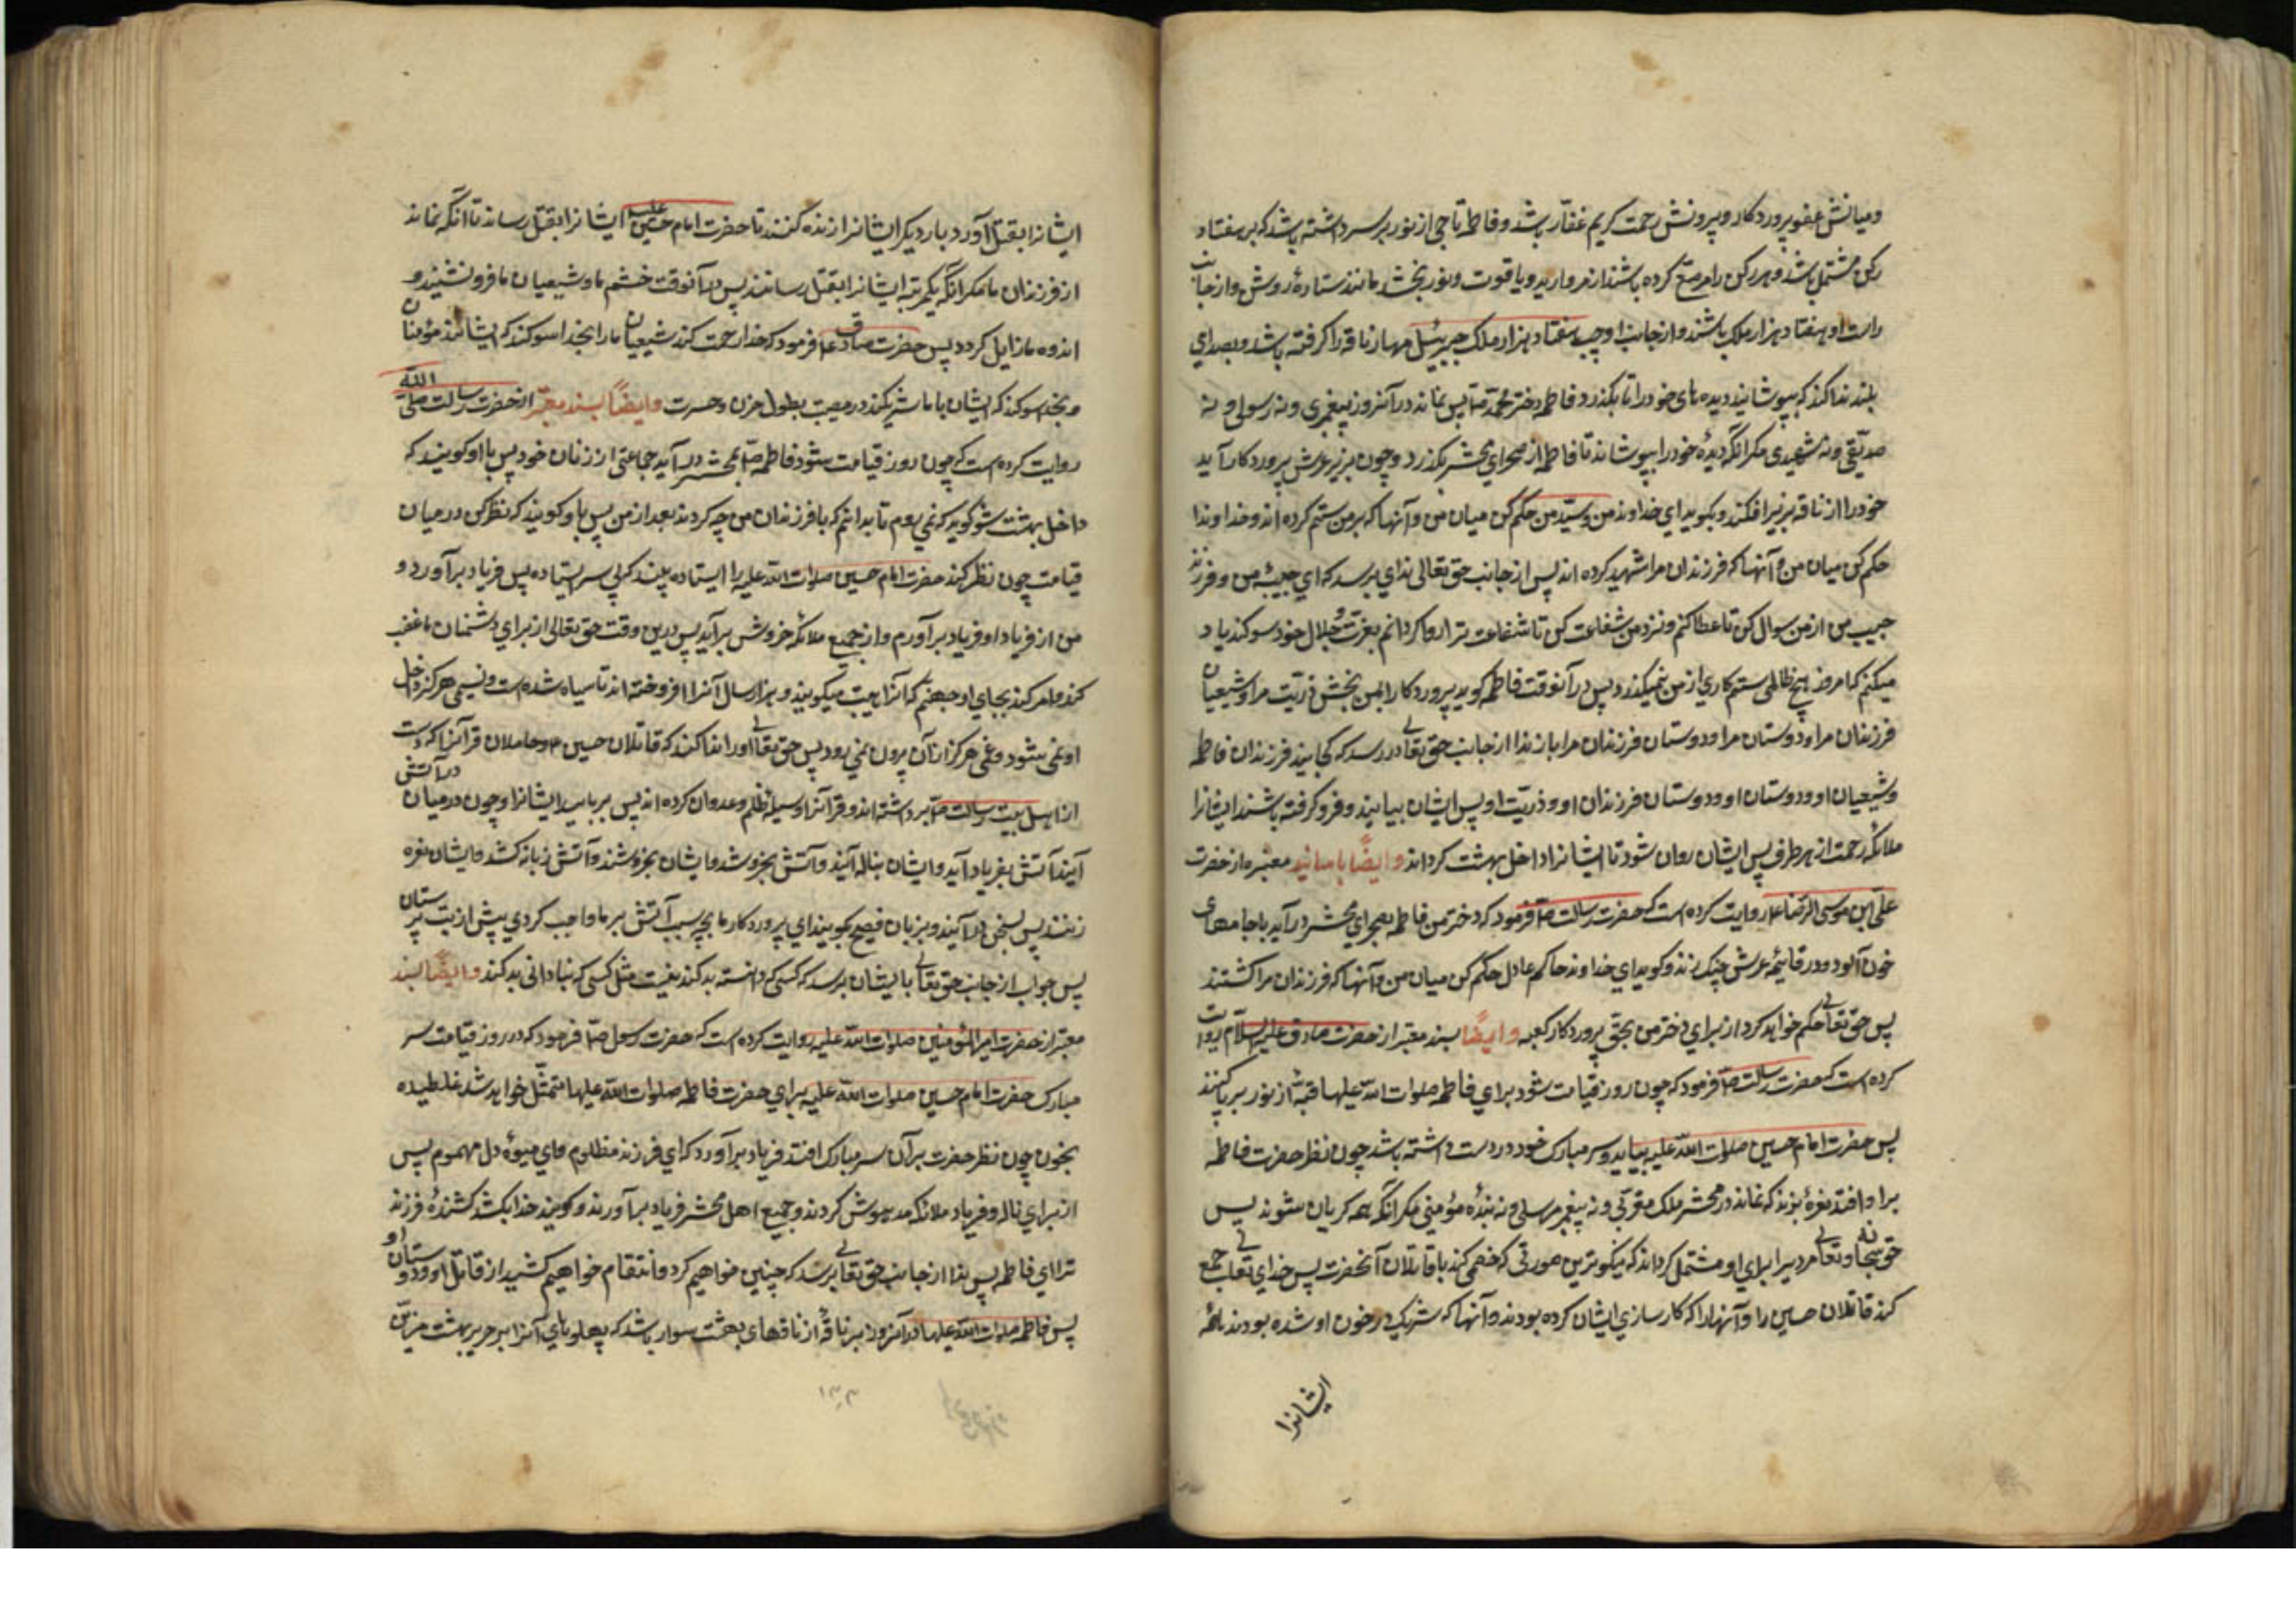 ومیانش عفو پروردکار و بیرونش رحمت کریم غفّار باشد و فاطمه تاجی از نور بر سر داشته باشد که بر هفتاد
رکن مشتمل باشد و هر رکن را مرصّع کرده باشند از مروارید و یاقوت و نور بخشد مانند ستارهٔ روشن و از جانب
راست او هفتاد هزار ملک باشند و از جانب او چپ هفتاد هزار ملک جبرئیل مهار ناقه را کرفته باشد و بصدای
بلند ندا کند که بپوشانید دیده های خود را تا بکذرد فاطمه دختر محمّد ص پس نماند در آنروز پیغمبری و نه رسولی و نه
صدّیقی و نه شهیدی مکر آنکه دیدهٔ خود را بپوشاند تا فاطمه از صحرای محشر بکذرد و چون بزیر عرش پروردکار آید
خود را از ناقه بزیر افکند و بکوید ای خداوند من و سیّد من حکم کن میان من و آنها که بر من ستم کرده اند و خداوندا
حکم کن میان من و آنها که فرزندان مرا شهید کرده اند پس از جانب حق تعالی ندای برسد که ای حبیبهٔ من و فرزند
حبیب من از من سوال کن تا عطا کنم و نزد من شفاعت کن تا شفاعت ترا روا کردانم بعزّت و جلال خود سوکند یاد
میکنم که امروز هیچ ظالمی ستم کاری از من نمیکذرد پس در آنوقت فاطمه کوید پروردکارا بمن بخش ذریّت مرا و شیعیان
فرزندان مرا و دوستان مرا و دوستان فرزندان مرا باز ندا از جانب حق تعالی در رسد که کجایند فرزندان فاطمه
و شیعیان او و دوستان او و دوستان فرزندان او و ذریّت او پس ایشان بیایند و فرو کرفته باشند ایشانرا
ملائکه رحمت از هر طرف پس ایشان روان شود تا ایشانرا داخل بهشت کرداند وایضًا باسانید معتبره از حضرت
علی ابن موسی الرضا ع روایت کرده است که حضرت رسالت ص فرمود که دختر من فاطمه بصحرای محشر درآید با جامهای
خون آلود و در قایمهٔ عرش چنک زند و کوید ای خداوند حاکم عادل حکم کن میان من و آنها که فرزندان مرا کشتند
پس حق تعالی حکم خواهد کرد از برای دختر من بحق پروردکار کعبه وایضًا بسند معتبر از حضرت صادق علیه السّلام روایت
کرده است که حضرت رسالت ص فرمود که چون روز قیامت شود برای فاطمه صلوات الله علیها قبّهٔ از نور بر پا کنند
پس حضرت امام حسین صلوات الله علیه بیاید و سر مبارک خود در دست داشته باشد چون نظر حضرت فاطمه
بر او افتد نعرهٔ بزند که نماند در محشر ملک مقرّبی و نه پیغمبر مرسلی و نه بندهٔ مؤمنی مکر آنکه همه کریان شوند پس
حق سبحانه و تعالی مردیرا برای او متمثل کرداند که نیکوترین صورتی که خصمی کند با قاتلان آنحضرت پس خدای تعالی جمع
کند قاتلان حسین را و آنها را که کارسازی ایشان کرده بودند و آنها که شریک در خون او شده بودند همهٔ
ایشانرا
ایشانرا بقتل آورد بار دیکر ایشانرا زنده کنند تا حضرت امام حسین علیه ایشانرا بقتل رساند تا آنکه نماند
از فرزندان ما مکر آنکه یکمرتبه ایشانرا بقتل رسانند پس در آنوقت خشم ما و شیعیان ما فرو نشیند و
اندوه ما زایل کردد پس حضرت صادق ع فرمود که خدا رحمت کند شیعیان ما را بخدا سوکند که ایشانند مؤمنان
و بخدا سوکند که ایشان با ما شریکند در مصیبت بطول حزن و حسرت وایضًا بسند معتبر از حضرت رسالت صلی الله
روایت کرده است که چون روز قیامت شود فاطمه ص بمحشر درآید جماعتی از زنان خود پس با او کویند که
داخل بهشت شو کوید که نمی روم تا بدانم که با فرزندان من چه کردند بعد از من پس باو کویند که نظر کن در میان
قیامت چون نظر کند حضرت امام حسین صلوات الله علیه را ایستاده بیند که بی سر ایستاده پس فریاد برآورد و
من از فریاد او فریاد برآورم و از جمیع ملائکه خروش برآید پس درین وقت حق تعالی از برای دشمنان ما غضب
کند و امر کند بجای او جهنم که آنرا هبهب میکویند و هزار سال آنرا افروخته اند تا سیاه شده است و نسیمی هرکز داخل
او نمی شود و غمی هرکز از آن بیرون نمی رود پس حق تعالی او را ندا کند که قاتلان حسین ع و حاملان قرآنرا که دست
از اهل بیت رسالت ص برداشته اند و قرآنرا وسیلهٔ ظلم و عدوان کرده اند پس بربایید ایشانرا و چون در میان در آتش
آیند آتش بفریاد آید و ایشان بناله آیند و آتش بخروشد و ایشان بخروشند و آتش زبانه کشد و ایشان نعره
زنند پس بسخن درآیند و بزبان فصیح بکویند ای پروردکار ما بچه سبب آتش بر ما واجب کردی پیش از بت پرستان
پس جواب از جانب حق تعالی بایشان برسد که کسی که دانسته بد کند نیست مثل کسی که بنادانی بد کند وایضًا بسند
معتبر از حضرت امیر المؤمنین صلوات الله علیه روایت کرده است که حضرت رسول ص فرمود که در روز قیامت سر
مبارک حضرت امام حسین صلوات الله علیه برای حضرت فاطمه صلوات الله علیها متمثّل خواهد شد غلطیده
بخون چون نظر حضرت بر آن سر مبارک افتد فریاد برآورد که ای فرزند مظلوم وای میوهٔ دل مهموم پس
از برای ناله و فریاد ملائکه مدهوش کردند و جمیع اهل محشر فریاد برآورند و کویند خدا بکشد کشندهٔ فرزند
ترا ای فاطمه پس ندا از جانب حق تعالی برسد که چنین خواهیم کرد و انتقام خواهیم کشید از قاتل او و دوستان او
پس فاطمه صلوات الله علیها در آنروز بر ناقهٔ از ناقهای بهشت سوار باشد که پهلوهای آنرا بر حریر بهشت مزیّن